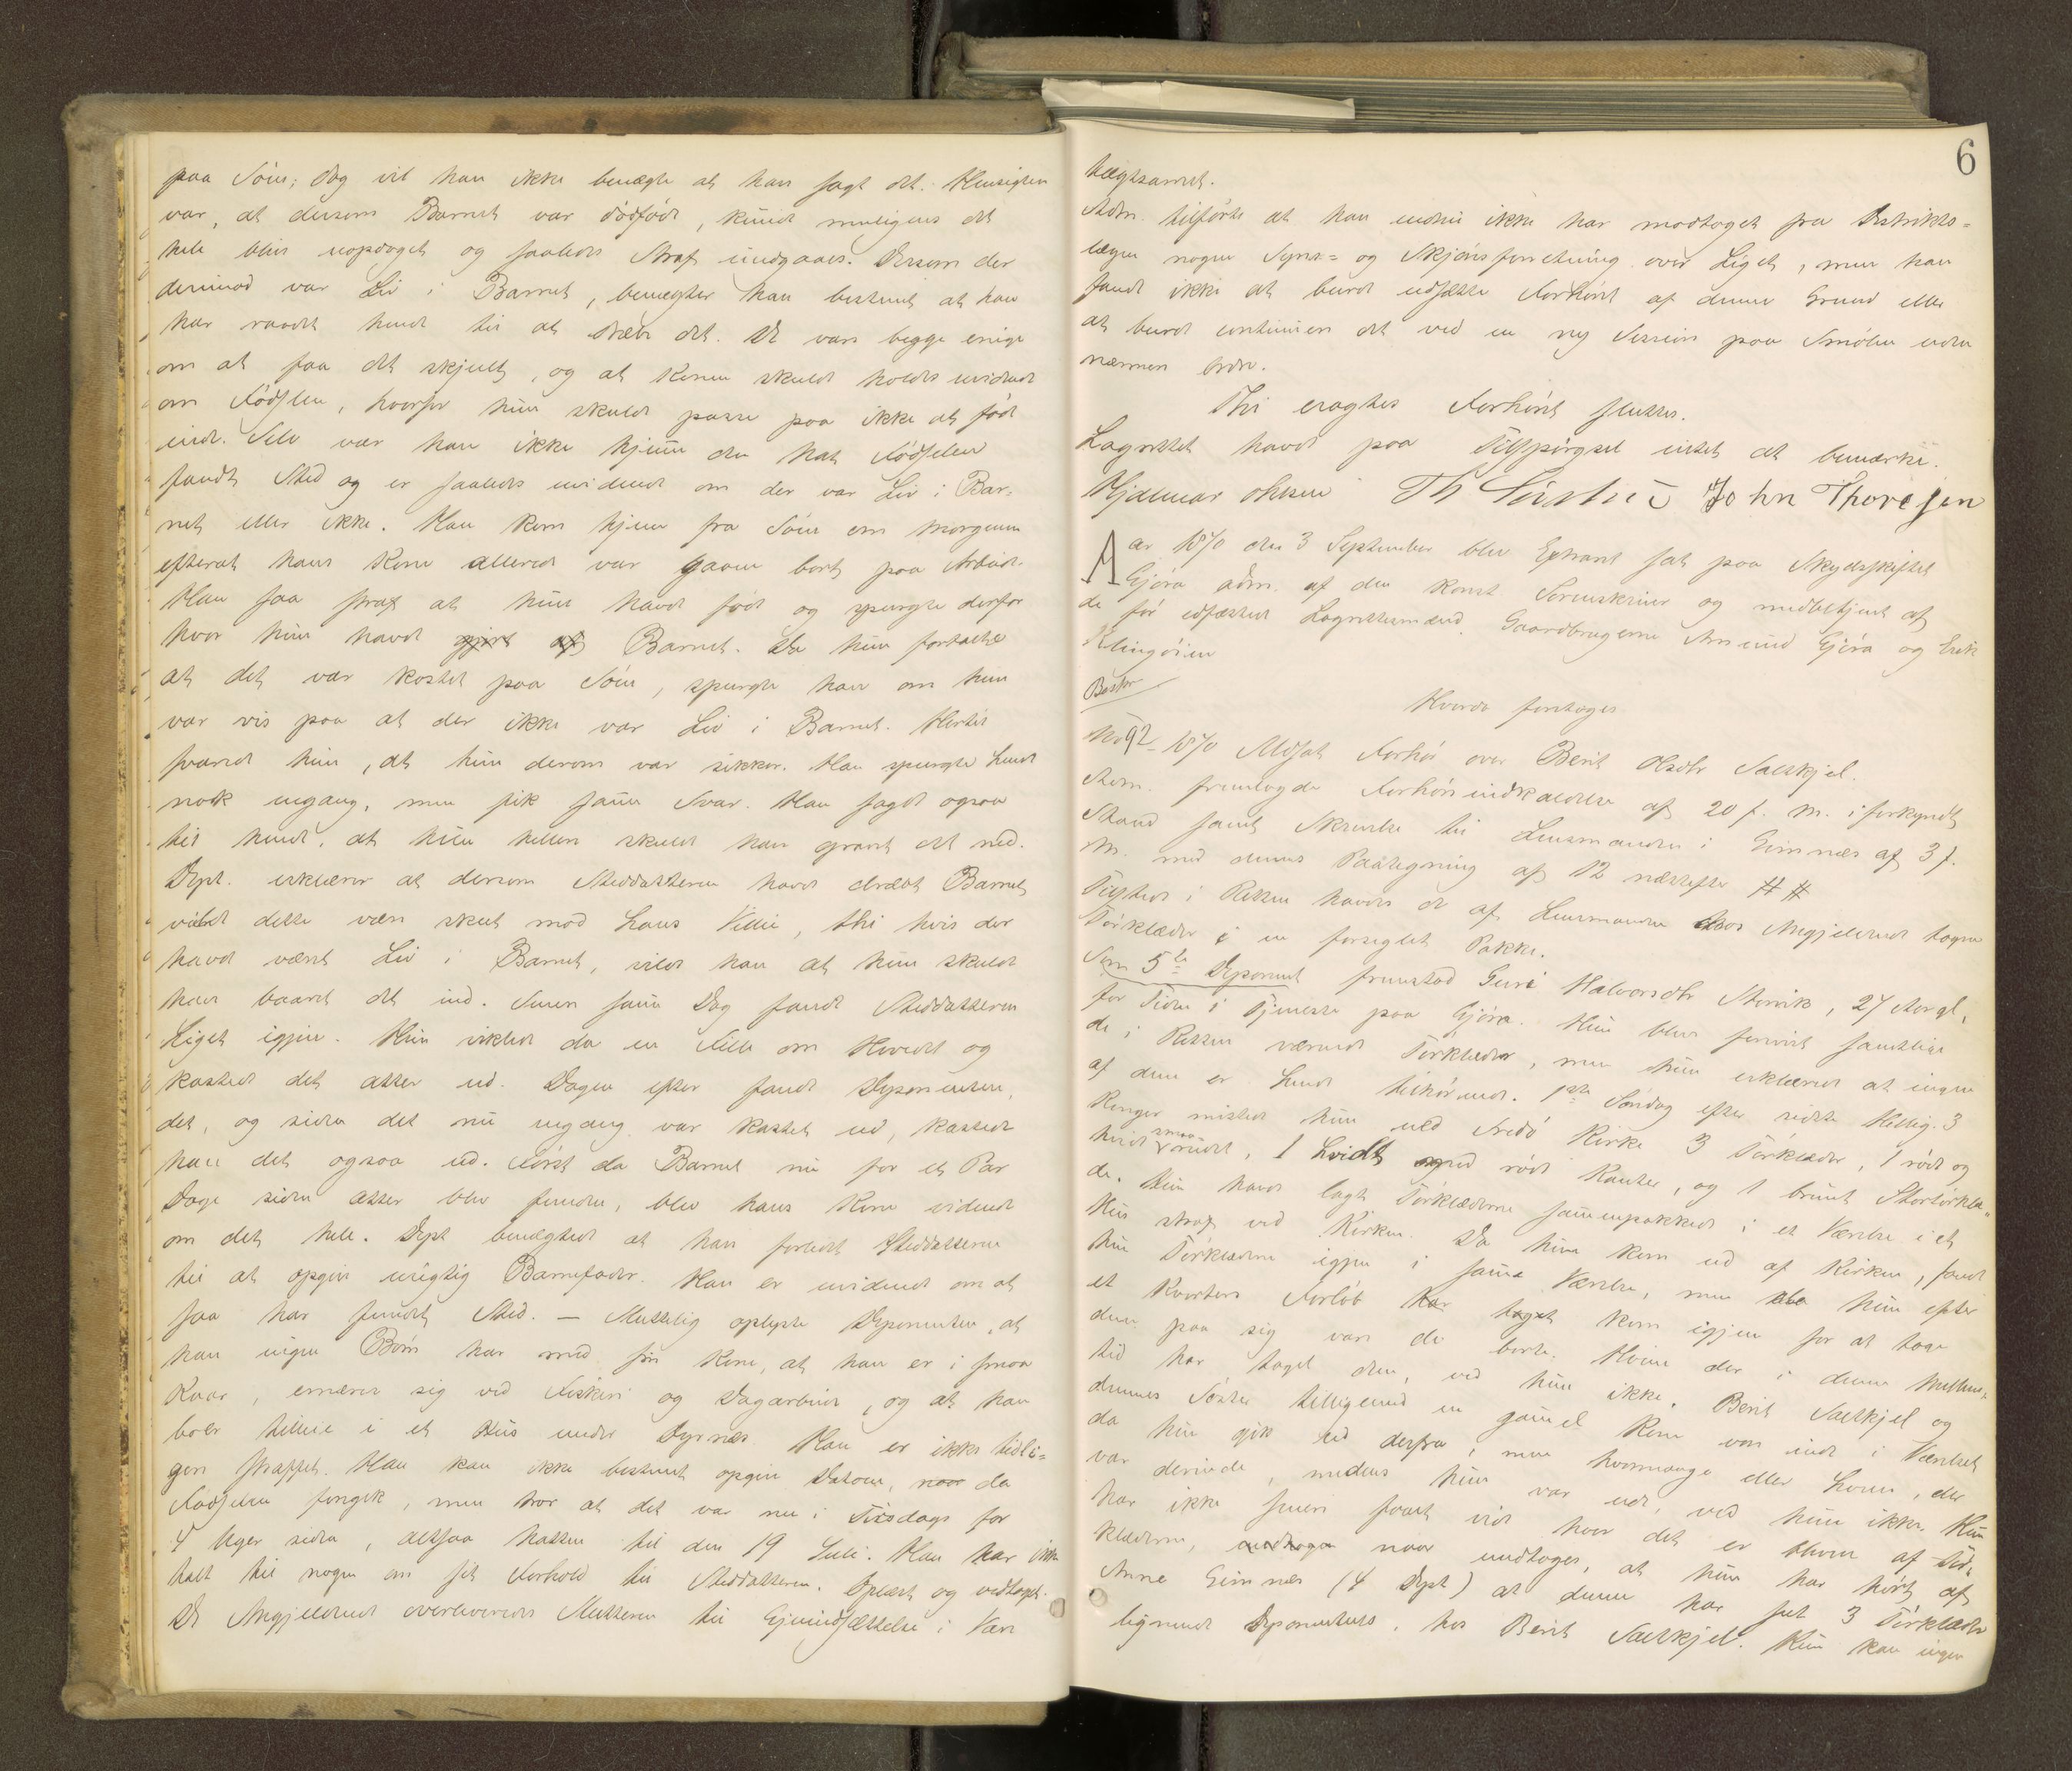 paa Söen; dog vil han ikke benægte at have sagt det. Hensigten
var, at dersom Barnet var dödfödt, kunde muligens det
hele blive uopdaget og saaledes Straf undgaaes. Dersom der
derimod var Liv i Barnet, benægter han bestemt at have
har raadet hende til at dræbe det. De vare begge enige
om at faa det skjult, og at Konen skulde holdes uvidende
om Födslen, hvorfor hun skulde passe paa ikke at föde
inde. Selv var han ikke hjemme da Födselen
fandt Sted og er saaledes uvidende om der var Liv i Bar-
net eller ikke. Han kom hjem fra Söen om Morgenen
efterat hans Kone allerede var gaaen bort paa Arbeide.
Han saa strax at hun havde födt og spurgte derfor
hvor hun havde gjort af Barnet. Da hun fortalte
at det var kastet paa Söen, spurgte han om hun
var vis paa at der ikke var Liv i Barnet. Hertil
svarede hun, at hun derom var sikker. Han spurgte hende
nok engang, men fik samme Svar. Han sagde ogsaa
til hende, at hun hellere skulde have gravet det ned.
Dept. erklærer at dersom Steddatteren havde dræbt Barnet
vilde dette være skeet mod hans Villie, thi hvis der
havde været Liv i Barnet, vilde han at hun skulde
have baaret det ind. Senere samme Dag fandt Steddatteren
Liget igjen. Hun viklede da en Fille om Hovedet og
kastede det atter ud. Dagen efter fandt Deponenten
det, og siden det nu engang var kastet ud, kastede
han det ogsaa ud. Först da Barnet nu for et Par
Dage siden atter blev fundet, blev hans Kone vidende
om det hele. Dept benægtede at have forledet Steddatteren
til at opgive urigtig Barnefader. Han er uvidende om at
saa har fundet Sted. — Mettelig oplyste Deponenten, at
han ingen Börn har med sin Kone, at han er i smaa
Kaar, ernærer sig ved Fiskeri og Dagarbeide, og at han
boer tilleie i et Hus under Dyrnæs. Han er ikke tidli-
gere straffet. Han kan ikke bestemt opgive Datoen, naar da
Födselen foregik, men tror at det var nu i Tirsdags for
4 Uger siden, altsaa Natten til den 19 Juli. Han har ikke
talt til nogen om sit Forhold til Steddatteren. Oplæst og vedtaget.
De Angjældende overleveredes til Gjenindsættelse i Vare
6
tægtsarrest.
Adm. tilförte at han endnu ikke har modtaget fra Distrikts-
lægen nogen Syns- og Skjönsforretning over Liget, men han
fandt ikke at burde udsætte Forhöret af denne Grund eller
at burde continuere det ved en ny Session paa Smölen uden
nærmere Ordre.
Thi eragtes Forhöret sluttet.
Lagrettet havde paa Tilspörgsel intet at bemærke.
Hjalmar Olsen John Thoresen
Aar 1870 den 3 September blev Extraret sat paa Skydsskiftet
Gjöra adm. af den konst Sorenskriver og medbetjent af
de för edfæstede Lagrettesmænd, Gaardbrugerne Amund Gjöra og Erik
Klingöien
Hvorda foretoges
No 92 1870 Udsat Forhör over Berit Olsdtr Saltkjel.
Adm. fremlagde Forhörsindkaldelse af 20 f. M. i forkyndt
Stand samt Skrivelse til Lensmanden i Gimnæs af 3 f.
M. med dennes Paategning af 12 næstefter ##
Tilstede i Retten havdes de af Lensmanden hos Angjeldende tagne
Törklæder i en forseglet Pakke.
Som 5te Deponent fremstod Guri Halvorsdtr Storvik, 27 Aar gl.,
for Tiden i Tjeneste paa Gjöra. Hun blev foreviist samtlige
de i Retten værende Törklæder, men hun erklærede at ingen
af dem er hende tilhörende. 1ste Söndag efter sidste Hellig. 3
Konger mistede hun ved Fredö Kirke 3 Törklæder, 1 rödt og
hvidt smaarudet, 1 hvidt med röde Kanter, og 1 brunt Stortörklæ-
de. Hun havde lagt Törklæderne sammenpakkede i et Værelse i et
Hus strax ved Kirken. Da hun kom ud af Kirken, fandt
hun Törklæderne igjen i samme Værelse, men da hun efter
et Kvarters Forlöb har taget kom igjen for at tage
dem paa sig vare de borte. Hvem der i denne Mellem-
tid har taget dem, ved hun ikke. Berit Saltkjel og
dennes Söster tilligemed en gammel Kone vare inde i Værelset
da hun gik ud derfra, men hvormange eller hvem, der
var derinde, medens hun var ude, ved hun ikke. Hun
har ikke senere faaet vide hvor det er blevet af Tör-
klæderne, undtagen naar undtages, at hun har hört af
Anne Gimnæs (4 Dept) at denne har seet 3 Törklæder
lignende Deponentens, hos Berit Saltkjel. Hun kan ingen